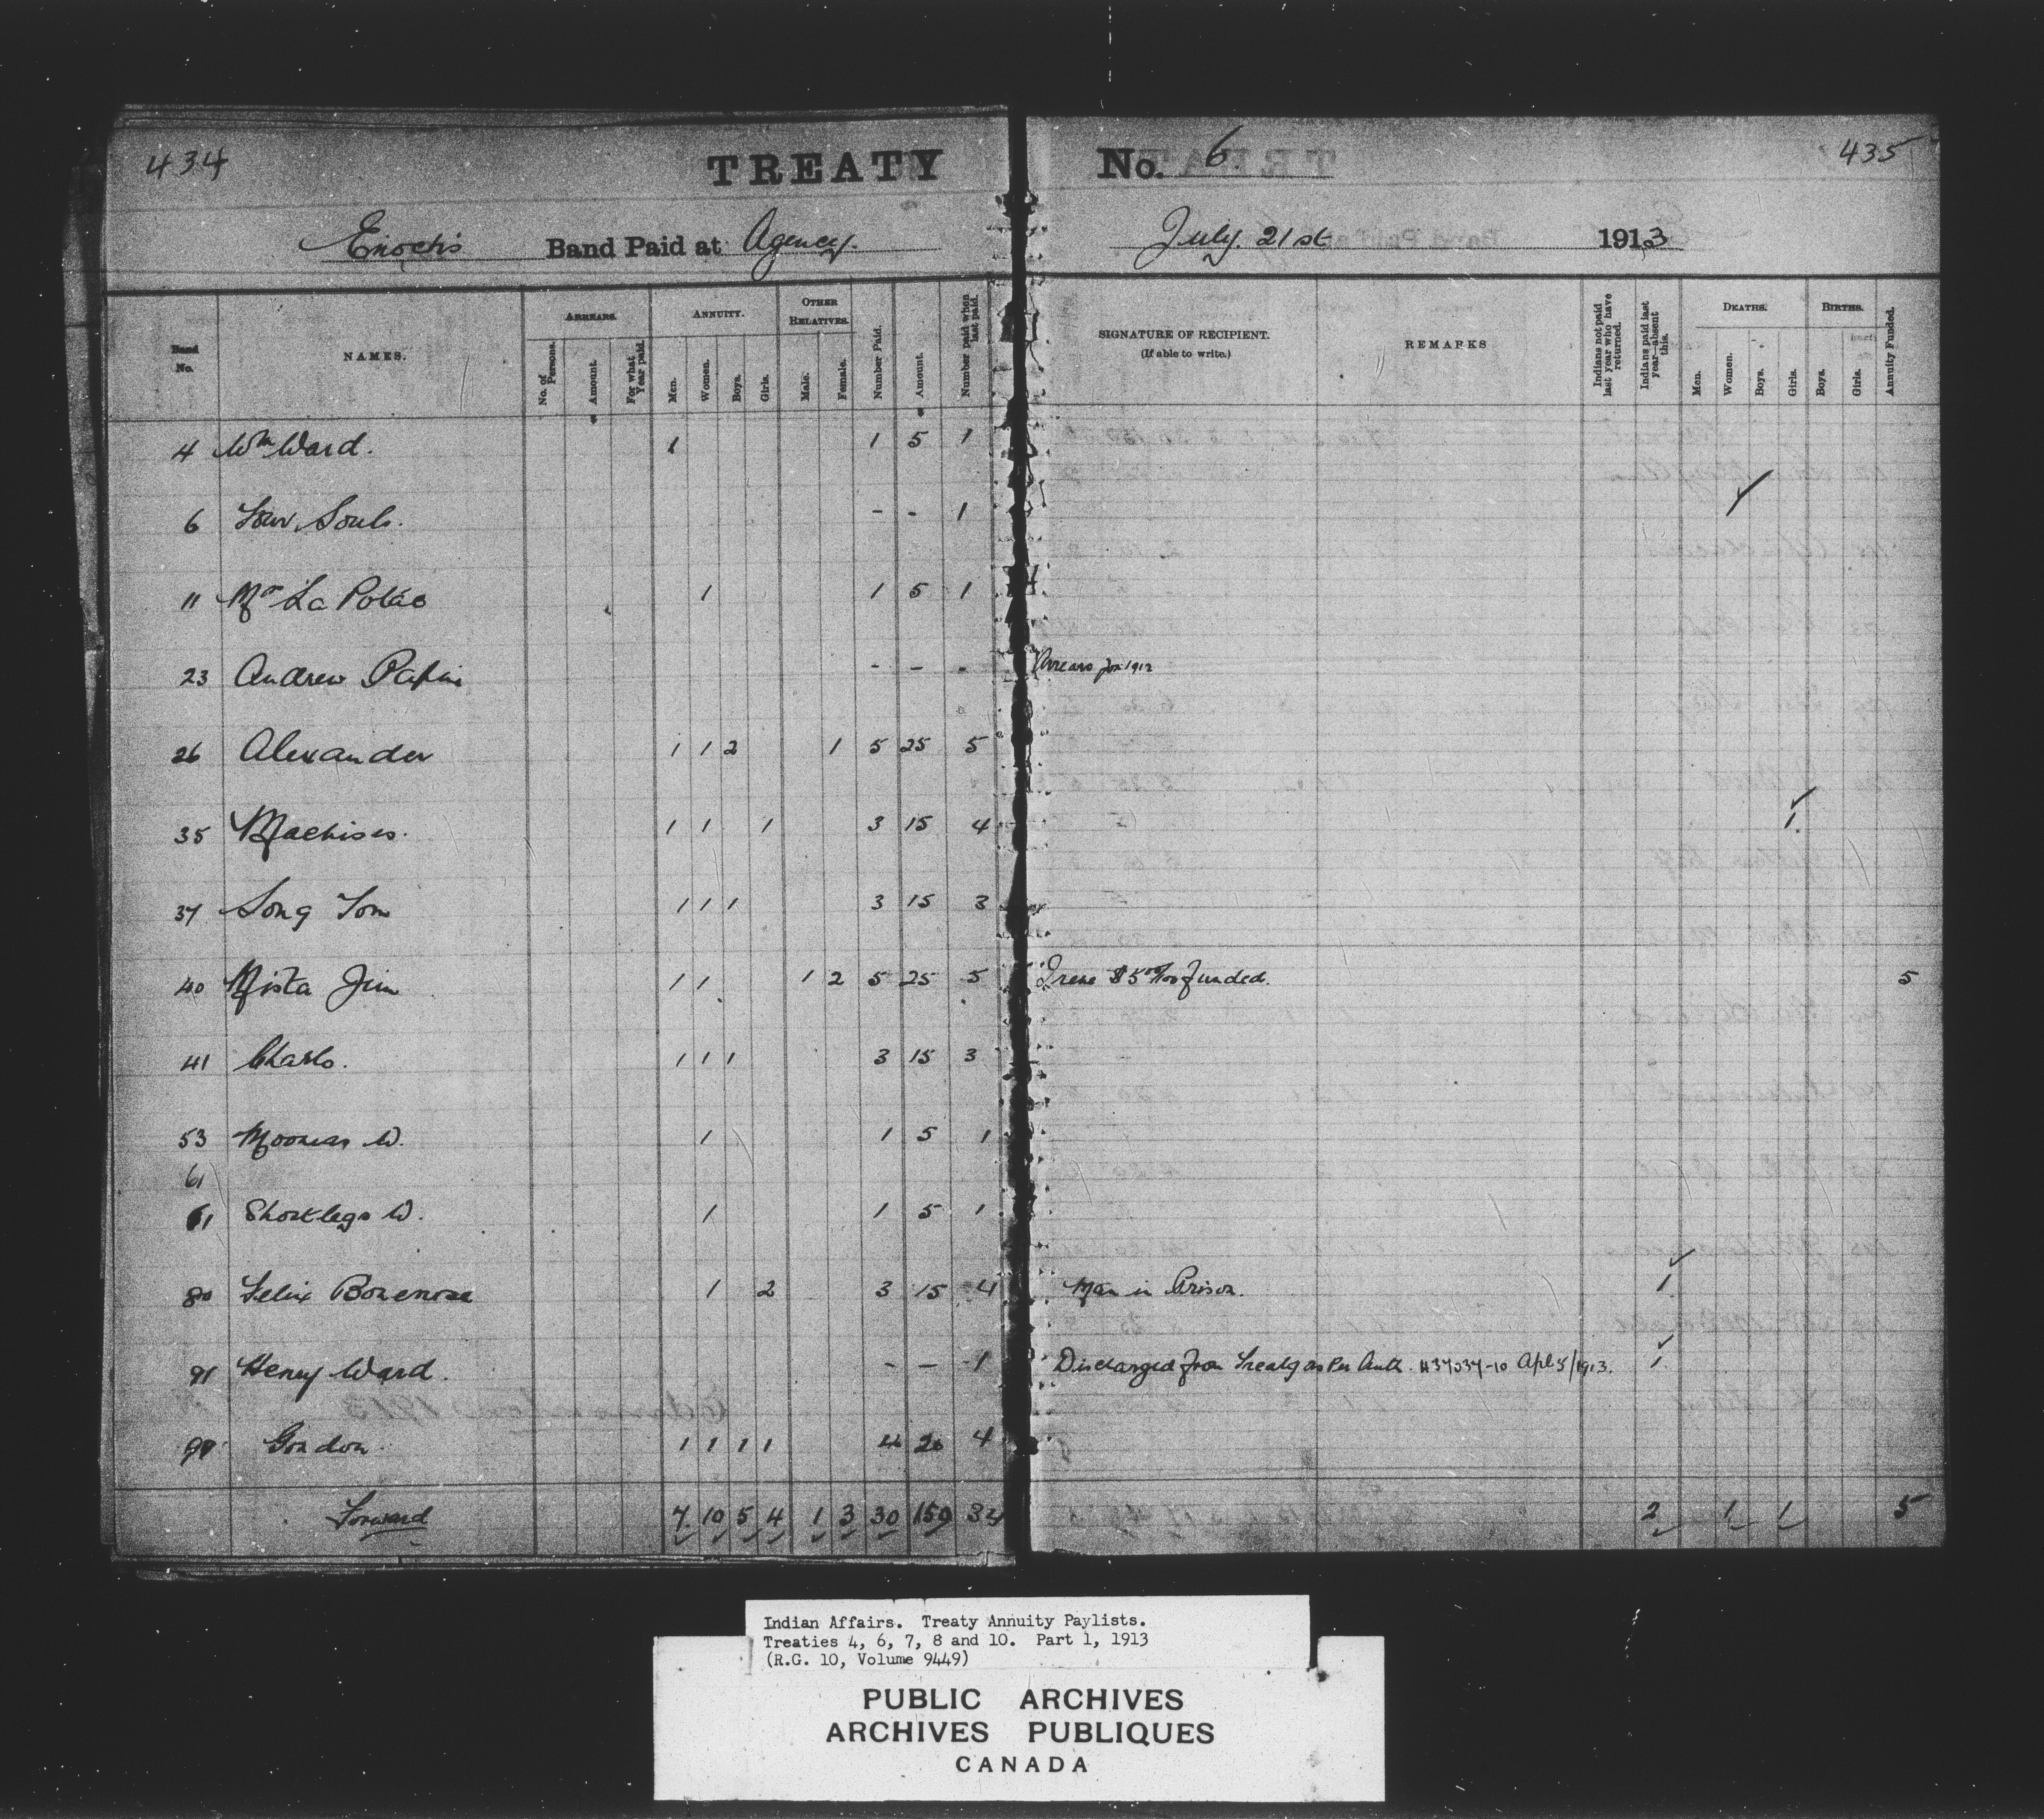 434
TREATY No. 6. 435
Enoch's Band Paid at Agency. July. 21st 1913
Band No. NAMES. ARREARS. No. of Persons. Amount. For what Year paid. ANNUITY. Men. Women. Boys. Girls. OTHER RELATIVES. Male. Female. Number Paid. Amount. Number paid when last paid. SIGNATURE OF RECIPIENT. (If able to write.) REMARKS Indians not paid last year who have returned. Indians paid last year—absent this. DEATHS. Men. Women. Boys. Girls. BIRTHS. Boys. Girls. Annuity Funded.
4 Wm Ward. 1 1 5 1
6 Four Souls. - - 1
11 Mrs La Potac 1 1 5 1
23 Andrew Papin - - - Arrears for 1912
26 Alexander 1 1 2 1 5 25 5
35 Machises. 1 1 1 3 15 4 1
37 Long Tom 1 1 1 3 15 3
40 Mista Jim 1 1 1 2 5 25 5 Irene $5 00/100 funded. 5
41 Charlo. 1 1 1 3 15 3
53 Moonias W. 1 1 5 1
61
61 Shortlegs W. 1 1 5 1
80 Felix Bonenose 1 2 3 15 4 Man in Prison. 1
91 Henry Ward. - - 1 Discharged from Treaty as Per Auth. #37037-10 Apl 5/1913. 1
99 Gordon. 1 1 1 1 4 20 4
Forward 7 10 5 4 1 3 30 150 33 2 1 1 5
Indian Affairs. Treaty Annuity Paylists.
Treaties 4, 6, 7, 8 and 10. Part 1, 1913
(R.G. 10, Volume 9449)
PUBLIC ARCHIVES
ARCHIVES PUBLIQUES
CANADA